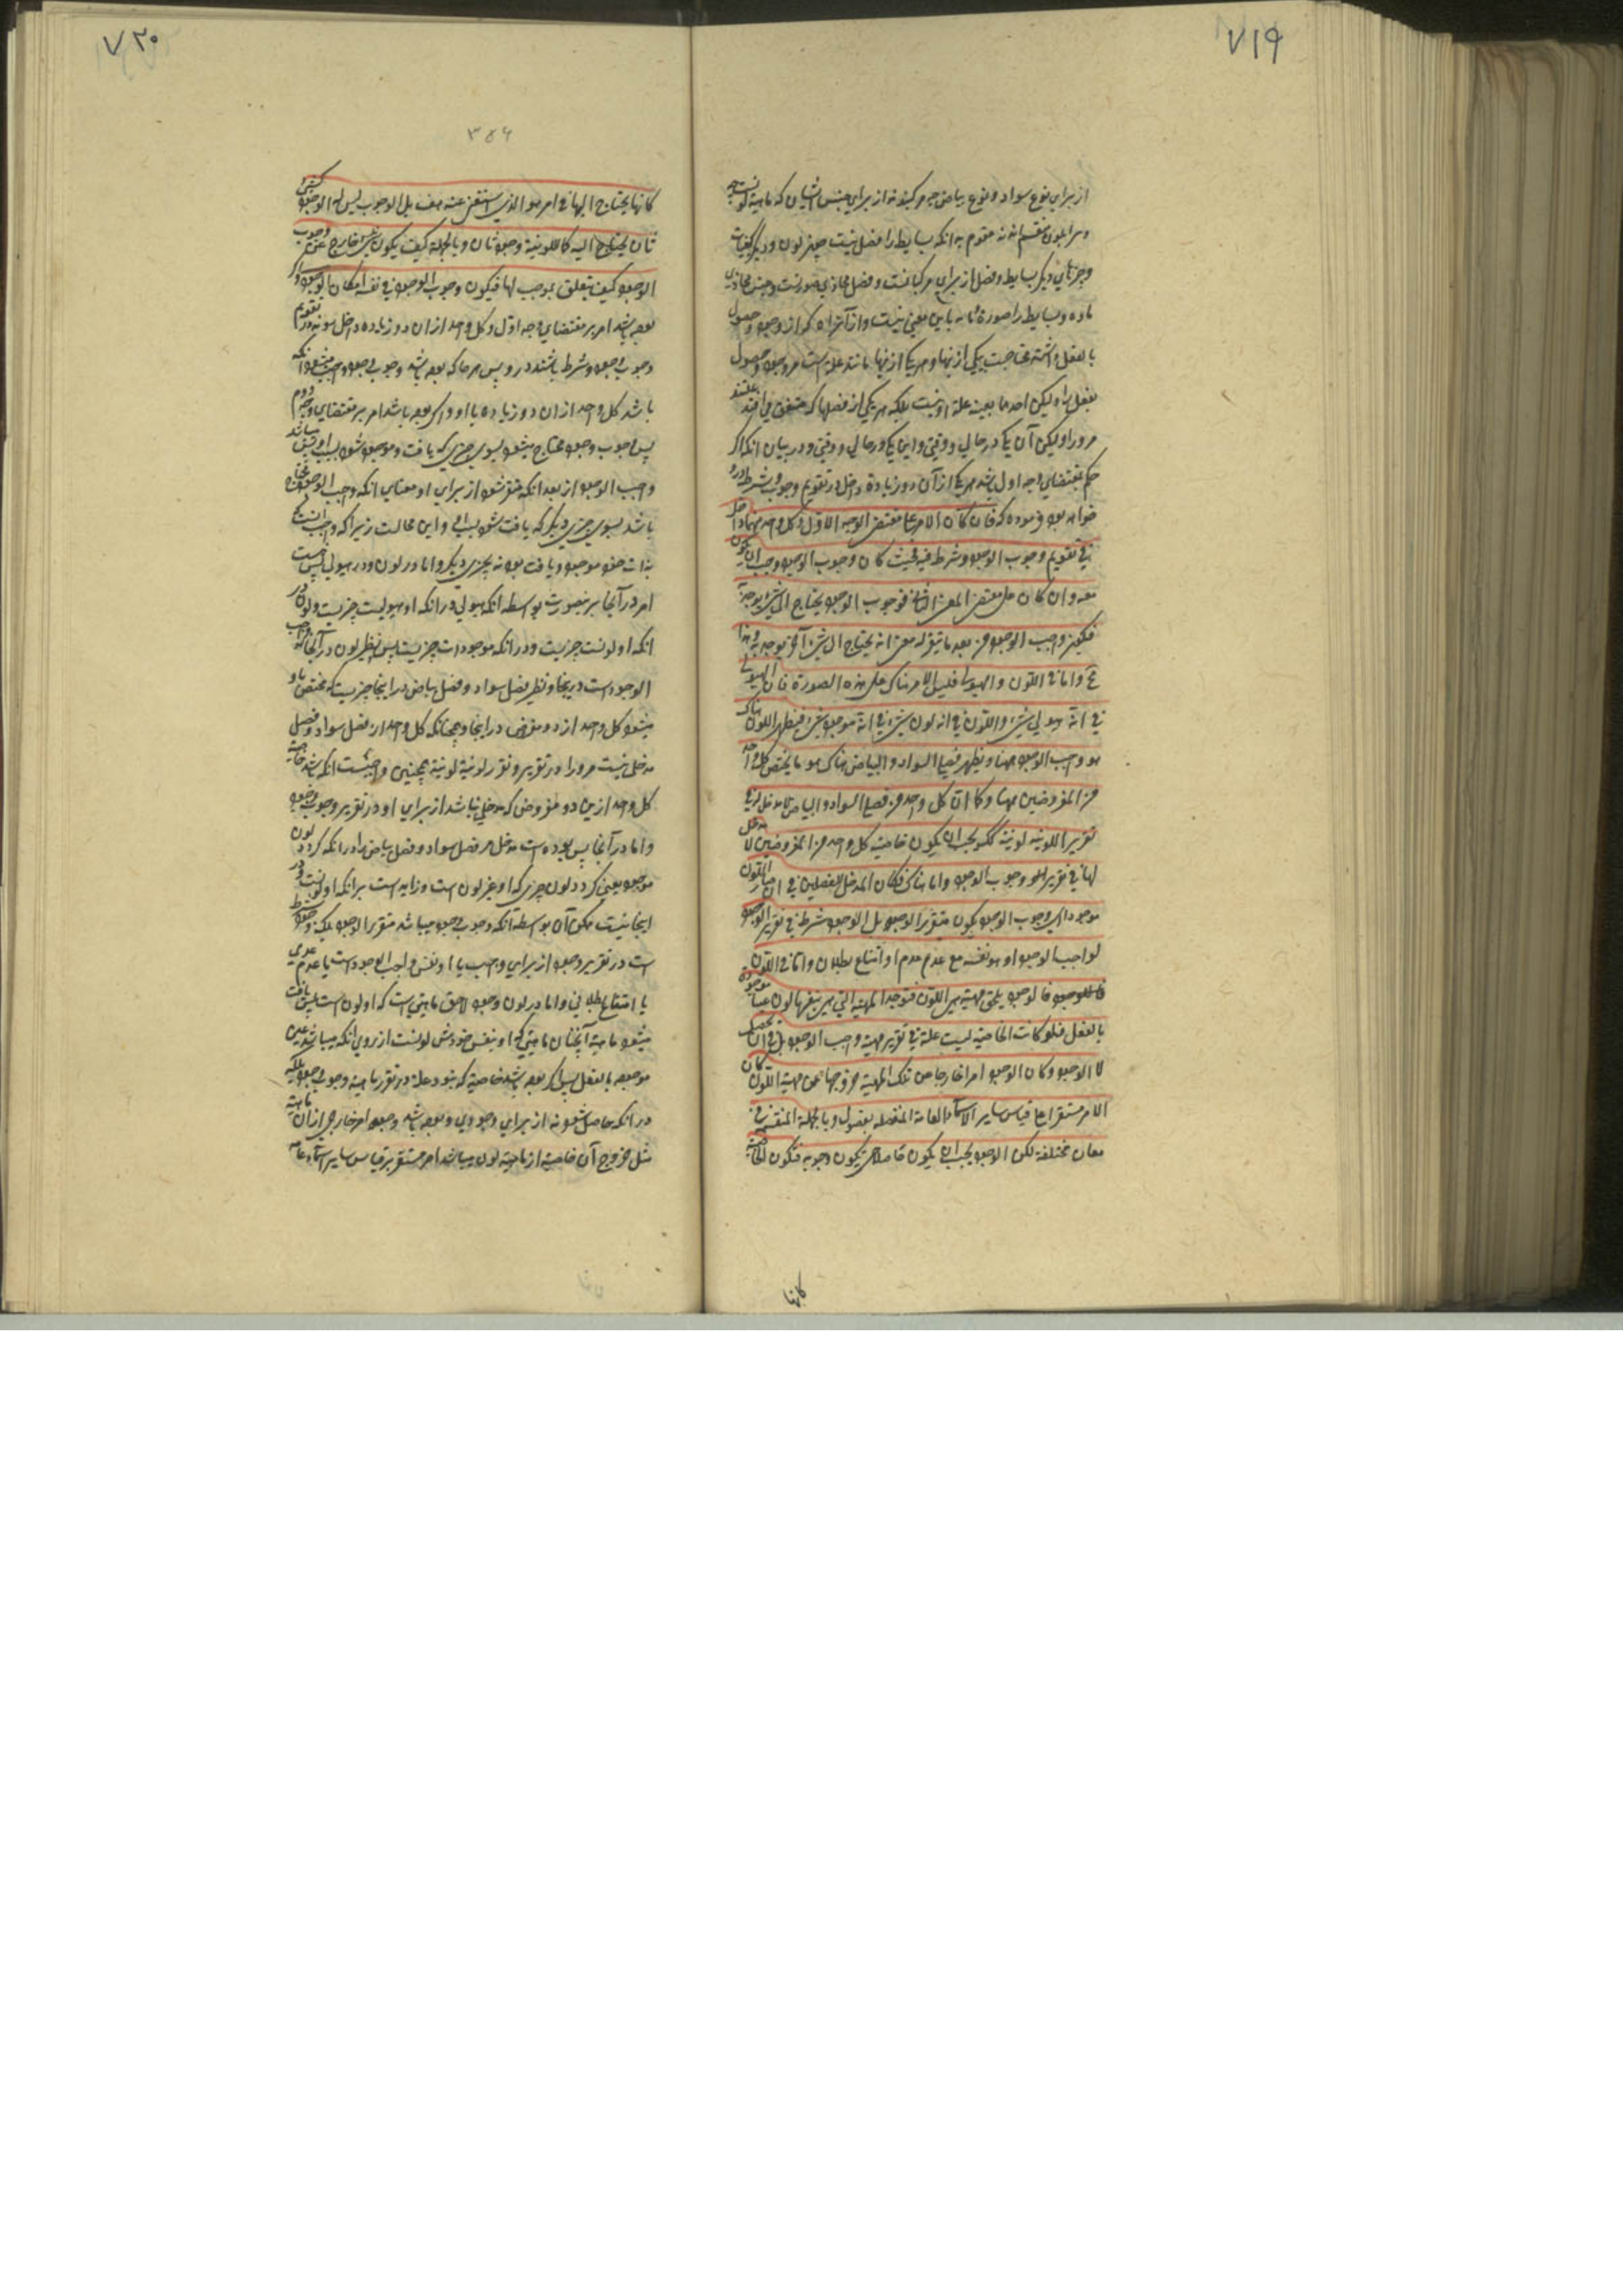 ۷۱۹
از برای نوع سواد و نوع بیاض
و مر ایلون منقسم اند نه مقوم به انکه بسایط را فصل نیست چون لون و دیگر کیفیات
و چیزهای دیگر بسایط و فصل از برای مرکباتست و فصل محاذی صورتست و جنس محاذی
ماده و بسایط را صورة و ماده باین معنی نیست
بالفعل داشته محتاجست بیکی از اینها و هر یک از اینها مانند علة است مر وجود و حصول
بفعل او را و لیکن احدهما بعینه علة او نیست بلکه هر یکی از فصلها که متفق می افتد علتند
مر او را و لیکن آن یک در حالی و وقتی و این یک در حالی و وقتی و در بیان انکه اگر
حکم بمقتضای وجه اول باشد هر یک از آن دو زیادة داخل در تقویم وجوب و شرط در او
خواهد بود فرموده که فان کان الامر علی مقتضی الوجه الاول و کل واحد منهما داخل
فی تقویم وجوب الوجود و شرط فیه فحیث کان وجوب الوجود وجب ان یکون
معه و ان کان علی مقتضی المعنی الثانی فوجوب الوجود یحتاج الی شیء یوجد به
فیکون واجب الوجود من بعد ما تقرر له معنی انه یحتاج الی شیء آخر یوجد به و هذا
مح و اما فی اللون و الهیولی فلیس الامر هناک علی هذه الصورة فان الهیولی
فی انه هیولی شیء و اللون فی انه لون شیء و فی انه موجود شیء فنظیر اللون هناک
هو واجب الوجود ههنا و نظیر فصلی السواد و البیاض هناک هو ما یختص کل واحد
من المفروضین ههنا و کما ان کل واحد من فصلی السواد و البیاض لا مدخل له فی
تقریر اللونیه لونیة کک یجب ان یکون خاصیته کل واحد من المفروضین لا مدخل
لها فی تقریر وجوب الوجود و اما هناک فکان المدخل للفصلین فی ان صار اللون
موجودا ای وجوب الوجود یکون متقرر الوجود بل الوجود شرط فی تقریر الوجود
لواجب الوجود او هو نفسه مع عدم عدم او امتناع بطلان و اما فی اللون
فالوجود یلحق مهیة هی اللون فتوجد المهیة التی هی بنفسها لون عینا موجودة
بالفعل فلو کانت الخاصیة لیست علة فی تقریر مهیة واجب الوجود بل فی ان تحصل
لا الوجود و کان الوجود امرا خارجا عن تلک المهیة خروجها عن مهیة اللون کان
الامر مستقرا علی قیاس سایر الاشیاء العامة المنفصله بفصول و بالجملة المنقسمة فی
معان مختلفة لکن الوجود یجب ان یکون حاصلا حتی یکون وجوبه فتکون الخاصیة
کانها
۷۲۰
۳۵۶
کانها یحتاج الیها فی امر هو الذی استغنی عنه هف بل الوجوب لیس له الوجود کشیء
ثان یحتاج الیه کاللونیة وجود ثان و بالجملة کیف یکون شیء خارج عن وجوب
الوجود کیف یتعلق بموجب لها فیکون وجوب الوجود فی نفسه امکان الوجود و اگر
بوده باشد امر بر مقتضای وجه اول و کل واحد از ان دو زیاده داخل بوند در تقویم
وجوب وجود و شرط باشند در او پس هر جا که بوده باشد وجوب وجود واجب میشود انکه
باشد کل واحد از ان دو زیاده با او و اگر بوده باشد امر بر مقتضای وجه دوم
پس وجوب وجود محتاج میشود بسوی چیزی که یافت و موجود شود بسبب او پس میباشد
واجب الوجود از بعد انکه متقرر شود از برای او معنای انکه واجب الوجود است محتاج
باشد بسوی چیزی دیگر که یافت شود بسبب او و این محالست زیرا که واجب انست که
بذات خود موجود و یافت بود نه بچیزی دیگر و اما در لون و در هیولی پس نیست
امر در آنجا بر نصورت بواسطه انکه هیولی در انکه او هیولیست چیزیست و لون در
انکه او لونست چیزیست و در انکه موجود است چیزیست پس نظیر لون در آنجا واجب
الوجود است در اینجا و نظیر فصل سواد و فصل بیاض در اینجا چیزیست که مختص باو
میشود کل واحد از دو مفروض در اینجا و چنانکه کل واحد از فصل سواد و فصل
مدخل نیست مر او را در تقریر و تقرر لونیة لونیة همچنین واجبست انکه باشد خاصیة
کل واحد ازین دو مفروض که مدخلی نباشد از برای او در تقریر وجوب وجود
و اما در آنجا پس بوده است مدخل مر فصل سواد و فصل بیاض را در انکه گردد لون
موجود یعنی گردد لون چیزی که او غیر لون است و زاید است بر انکه او لونست و در
اینجا نیست ممکن آن بواسطه انکه وجوب وجود میباشد متقرر الوجود بلکه وجود شرط
است در تقریر وجود از برای واجب یا او نفس واجب الوجود است با عدم عدمی
یا امتناع بطلانی و اما در لون وجود لاحق ماهیتی است که او لون است پس یافت
میشود ماهیة آنچنان ماهیتی که او بنفس خودش لونست از روی انکه میباشد عین
موجود بالفعل پس اگر بوده باشد خاصیة که نبود علة در تقرر ماهیة وجوب وجود بلکه
در انکه حاصل شود نه از برای وجودی و بوده باشد وجود امر خارجی از آن ماهیة
مثل خروج آن خاصیة از ماهیة لون میباشد امر مستقر بر قیاس سایر اشیاء عامه